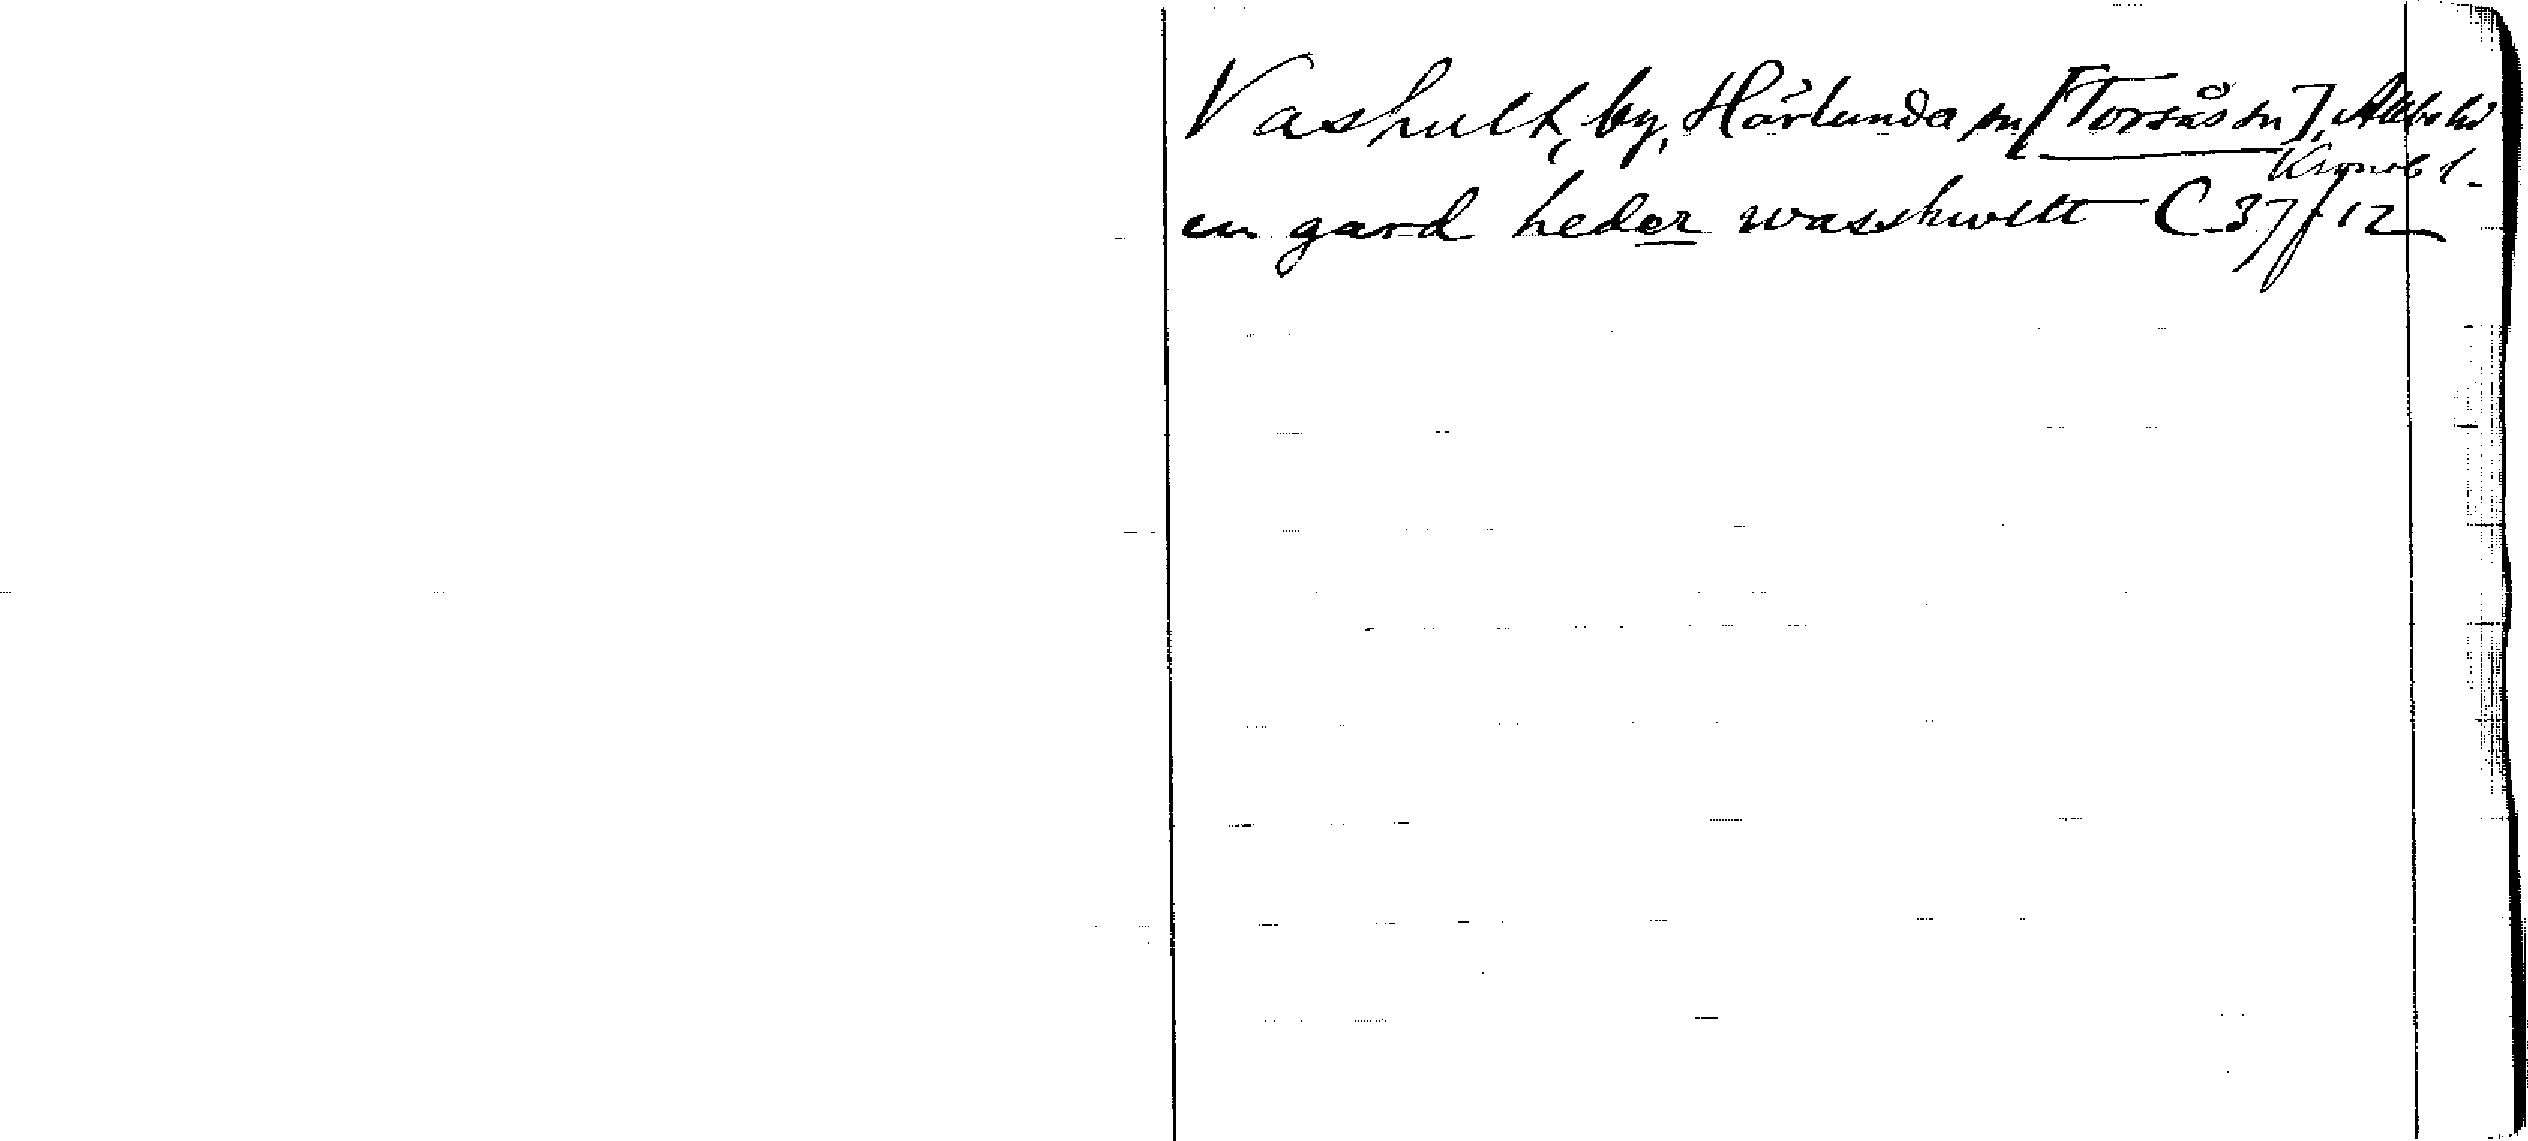 Vashult, by, Härlunda sn [Torsås sn], Allbo hd
Kronob l.
en gard heder wasshwltt C 37 f 12